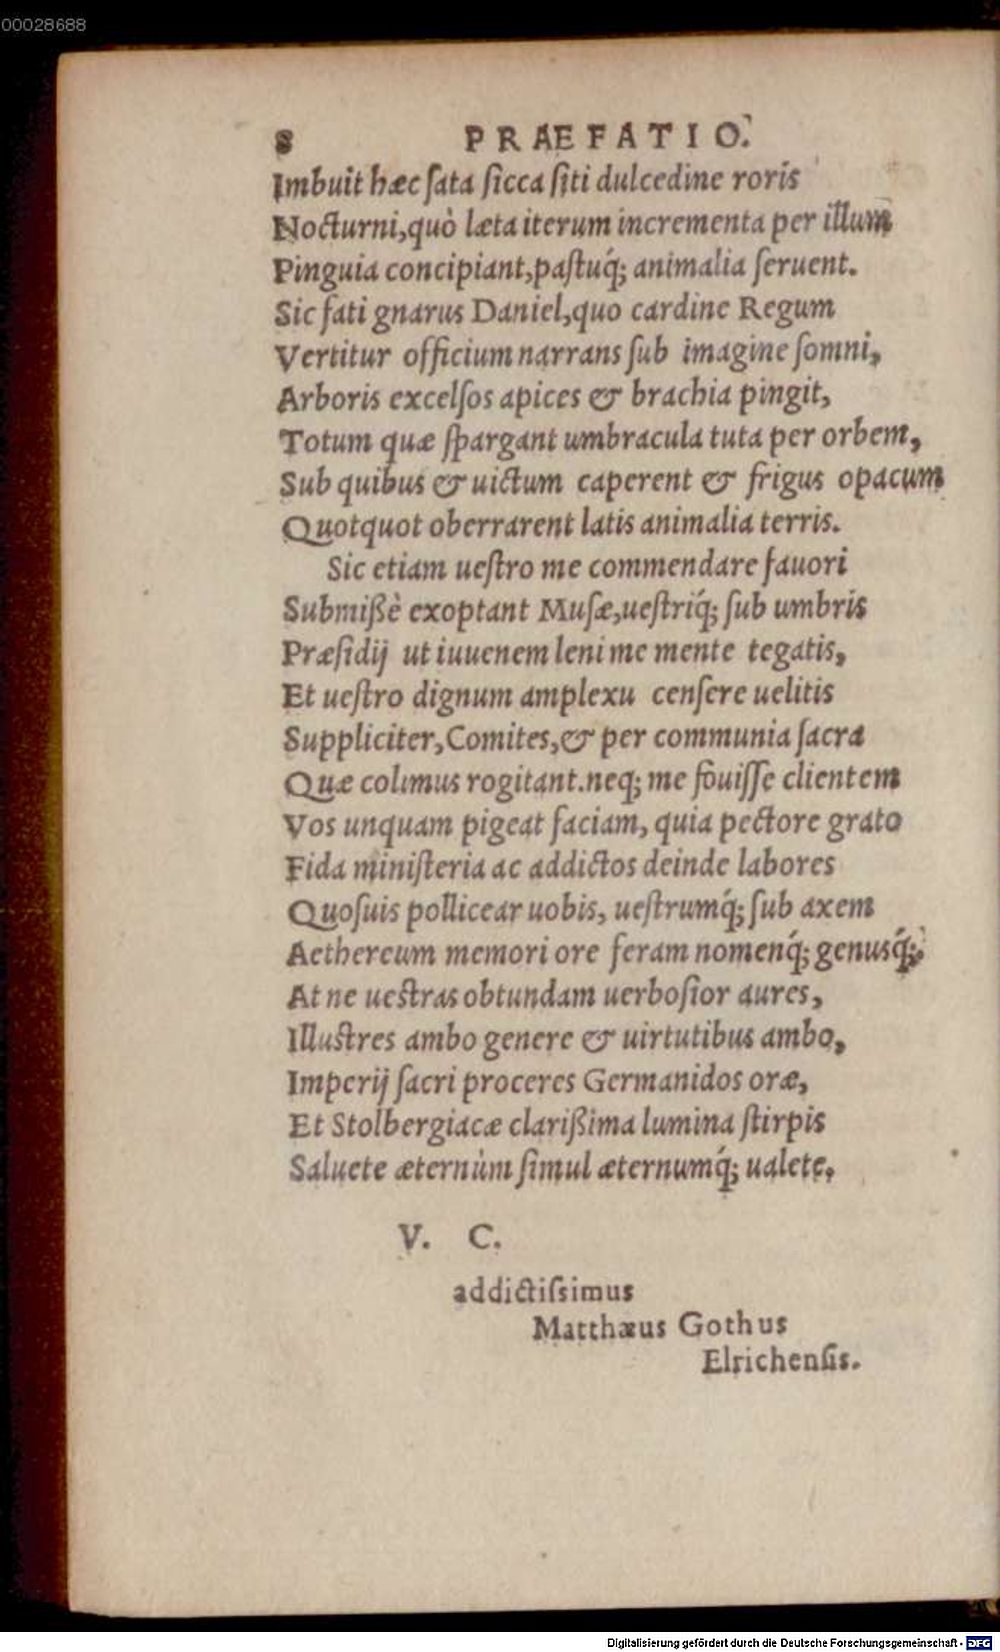 00028688
8 PRAEFATIO.
Imbuit hæc ſata ſicca ſiti dulcedine roris
Nocturni,quò læta iterum incrementa per illum
Pinguia concipiant,paſtuq́; animalia ſeruent.
Sic fati gnarus Daniel,quo cardine Regum
Vertitur officium narrans ſub imagine ſomni,
Arboris excelſos apices & brachia pingit,
Totum quæ ſpargant umbracula tuta per orbem,
Sub quibus & uictum caperent & frigus opacum
Quotquot oberrarent latis animalia terris.
Sic etiam ueſtro me commendare fauori
Submißè exoptant Muſæ,ueſtriq́; ſub umbris
Præſidij ut iuuenem leni me mente tegatis,
Et ueſtro dignum amplexu cenſere uelitis
Suppliciter,Comites,& per communia ſacra
Quæ colimus rogitant.neq; me fouiſſe clientem
Vos unquam pigeat faciam, quia pectore grato
Fida miniſteria ac addictos deinde labores
Quoſuis pollicear uobis, ueſtrumq́; ſub axem
Aethereum memori ore feram nomenq́; genusq́;.
At ne ueſtras obtundam uerboſior aures,
Illuſtres ambo genere & uirtutibus ambo,
Imperij ſacri proceres Germanidos oræ,
Et Stolbergiacæ clarißima lumina ſtirpis
Saluete æternùm ſimul æternumq́; ualete.
V. C.
addictiſsimus
Matthæus Gothus
Elrichenſis.
Digitalisierung gefördert durch die Deutsche Forschungsgemeinschaft - DFG